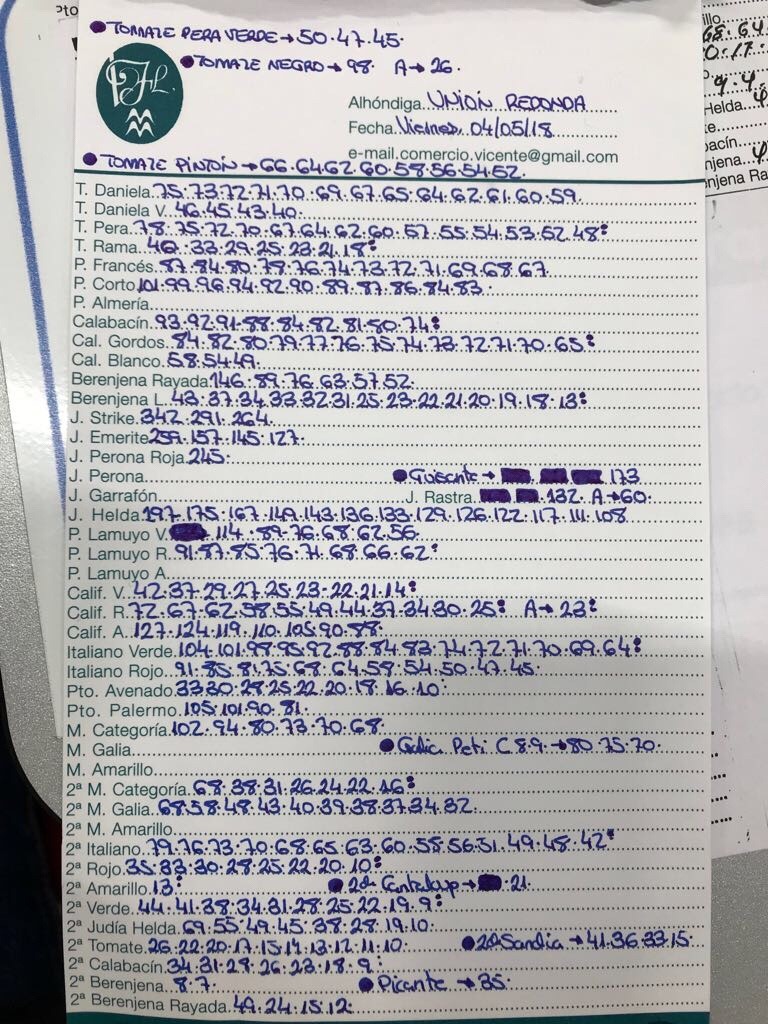 TOMATE PERA VERDE → 50.47.45.
TOMATE NEGRO → 98. A → 26.
FHL
Alhóndiga. UNION REDONDA
Fecha. Viernes 04/05/18
e-mail.comercio.vicente@gmail.com
TOMATE PINTON → 66.64.62.60.58.56.54.52.
T. Daniela. 75.73.72.71.70.69.67.65.64.62.61.60.59.
T. Daniela V. 46.45.43.40.
T. Pera. 78.75.72.70.67.64.62.60.57.55.54.53.52.48:
T. Rama. 40.33.29.25.23.21.18:
P. Francés. 87.84.80.78.76.74.73.72.71.69.68.67.
P. Corto 101.99.96.94.92.90.89.87.86.84.83.
P. Almería.
Calabacín. 93.92.91.88.84.82.81.80.74:
Cal. Gordos. 84.82.80.79.77.76.75.74.73.72.71.70.65:
Cal. Blanco. 58.54.49.
Berenjena Rayada. 146.89.76.63.57.52.
Berenjena L. 43.37.34.33.32.31.25.23.22.21.20.19.18.13:
J. Strike. 342.291.264.
J. Emerite 259.157.145.127.
J. Perona Roja. 245.
J. Perona. Guisante → 173
J. Garrafón. J. Rastra. 132. A → 60.
J. Helda 197.175.167.149.143.136.133.129.126.122.117.111.108
P. Lamuyo V. 114.89.76.68.62.56.
P. Lamuyo R. 91.87.85.76.71.68.66.62:
P. Lamuyo A.
Calif. V. 42.37.29.27.25.23.22.21.14:
Calif. R. 72.67.62.58.55.49.44.37.34.30.25: A → 23:
Calif. A. 127.124.119.110.105.90.88.
Italiano Verde. 104.101.98.95.92.88.84.83.74.72.71.70.69.64:
Italiano Rojo. 91.85.81.75.68.64.58.54.50.47.45.
Pto. Avenado. 33.30.28.25.22.20.18.16.10:
Pto. Palermo. 105.101.90.81.
M. Categoría. 102.94.80.73.70.68.
M. Galia. Galia Peti C 8.9. → 80.75.70.
M. Amarillo.
2ª M. Categoría. 68.38.31.26.24.22.16:
2ª M. Galia. 68.58.48.43.40.39.38.37.34.32.
2ª M. Amarillo.
2ª Italiano. 79.76.73.70.68.65.63.60.58.56.51.49.48.42:
2ª Rojo. 35.33.30.28.25.22.20.10:
2ª Amarillo. 13: 2ª Cantaloup → 21.
2ª Verde. 44.41.38.34.31.28.25.22.19.9:
2ª Judía Helda. 69.55.49.45.38.28.19.10.
2ª Tomate. 26.22.20.17.15.14.13.12.11.10. 2ª Sandia → 41.36.33.15.
2ª Calabacín. 34.31.28.26.23.18.9:
2ª Berenjena. 8.7. Picante → 35.
2ª Berenjena Rayada. 49.24.15.12.